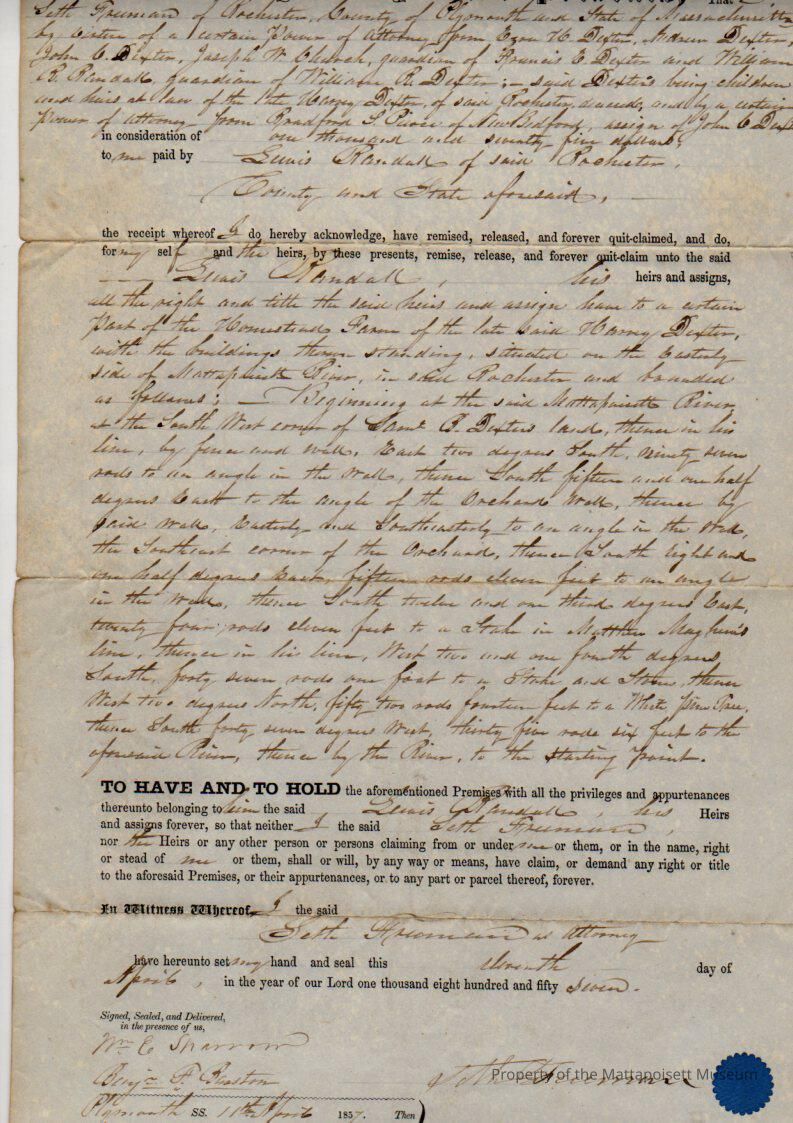 That I
Seth Freeman of Rochester, County of Plymouth and State of Massachusetts
by virtue of a certain Power of Attorney from Ezra H. Dexter, Andrew Dexter,
John C. Dexter, Joseph W. Church, guardian of Francis E Dexter and William
R. Randall, guardian of William R. Dexter; said Dexters being children
and heirs at law of the late Harvey Dexter, of said Rochester, deceased, and by a certain
power of attorney from Bradford S. Pierce of New Bedford, assign of John C Dexter
in consideration of one thousand and seventy five dollars,
to me paid by Lewis Randall of said Rochester,
County and State aforesaid,
the receipt whereof I do hereby acknowledge, have remised, released, and forever quit-claimed, and do,
for my self and the heirs, by these presents, remise, release, and forever quit-claim unto the said
Lewis Randall, his heirs and assigns,
all the right and title the said heirs and assign have to a certain
part of the Homestead Farm of the late said Harvey Dexter,
with the buildings thereon standing, situated on the Easterly
side of Mattapoisett River, in said Rochester and bounded
as follows; Beginning at the said Mattapoisett River
at the South West corner of Saml. R. Dexters land, thence in his
line, by fence and wall, East two degrees South, ninety seven
rods to an angle in the wall, thence South fifteen and one half
degrees East to the angle of the Orchard Wall, thence by
said wall, Easterly and Southeasterly to an angle in the
the Southeast corner of the Orchard, thence South eight and
one half degrees East, fifteen rods eleven feet to an angle
in the wall, thence South twelve and one third degrees East,
twenty four rods eleven feet to a Stake in Matthew
line, thence in his line, West two and one fourth degrees
South, forty seven rods one foot to a Stake and Stone, thence
West two degrees North, fifty two rods fourteen feet to a White pine Tree,
thence South forty seven degrees West, thirty five rods six feet to the
aforesaid River, thence by the River, to the starting point.
TO HAVE AND TO HOLD the aforementioned Premises with all the privileges and appurtenances
thereunto belonging to him the said Lewis Randall, his Heirs
and assigns forever, so that neither I the said Seth Freeman,
nor the Heirs or any other person or persons claiming from or under me or them, or in the name, right
or stead of me or them, shall or will, by any way or means, have claim, or demand any right or title
to the aforesaid Premises, or their appurtenances, or to any part or parcel thereof, forever.
In Witness Whereof, I the said
Seth Freeman as Attorney
have hereunto set my hand and seal this eleventh day of
April, in the year of our Lord one thousand eight hundred and fifty seven.
Signed, Sealed, and Delivered,
in the presence of us,
Wm E Sparrow
Benjn F. Seth Freeman
Property of the Mattapoisett Museum
Plymouth SS. 11th April 1857. Then